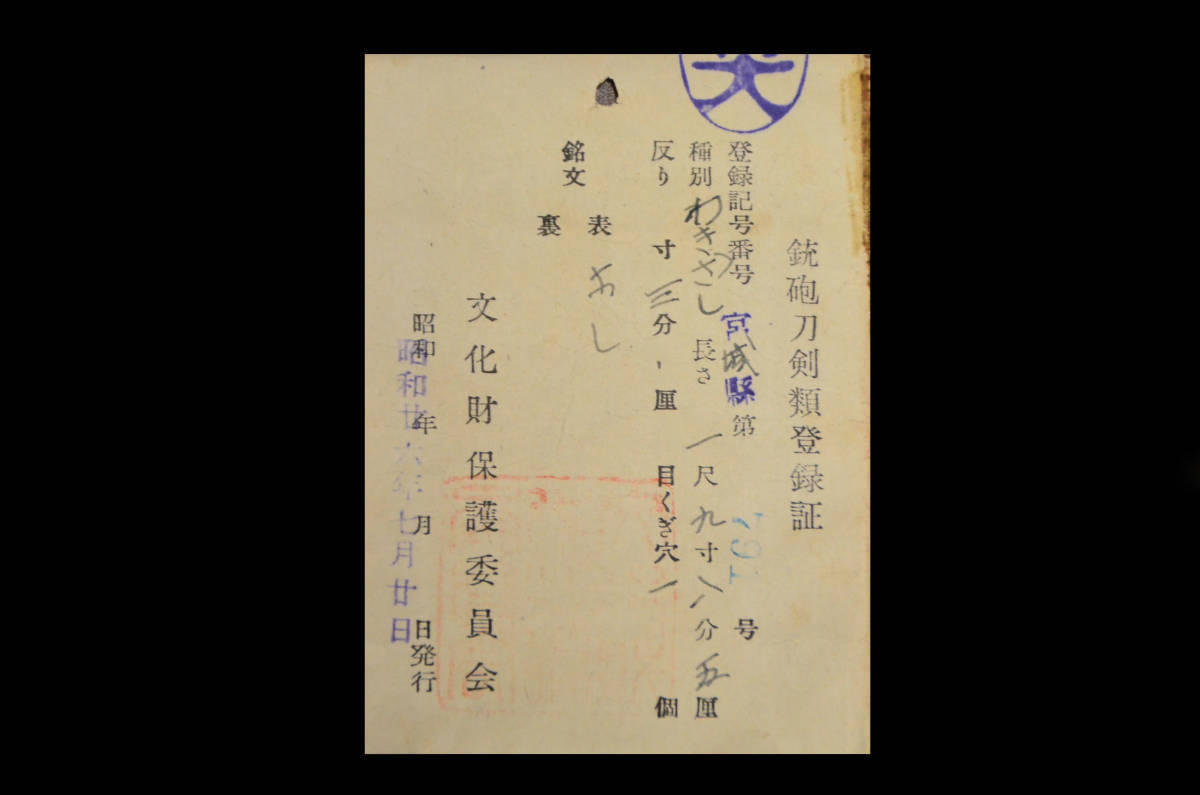 銃砲刀剣類登録証
登録記号番号 宮城縣 第 号
種別 わきざし 長さ 一尺九寸八分五厘
反り 寸三分、厘 目くぎ穴 一個
銘文
表 なし
裏
文化財保護委員会
昭和 年 月 日発行
昭和廿六年七月廿日